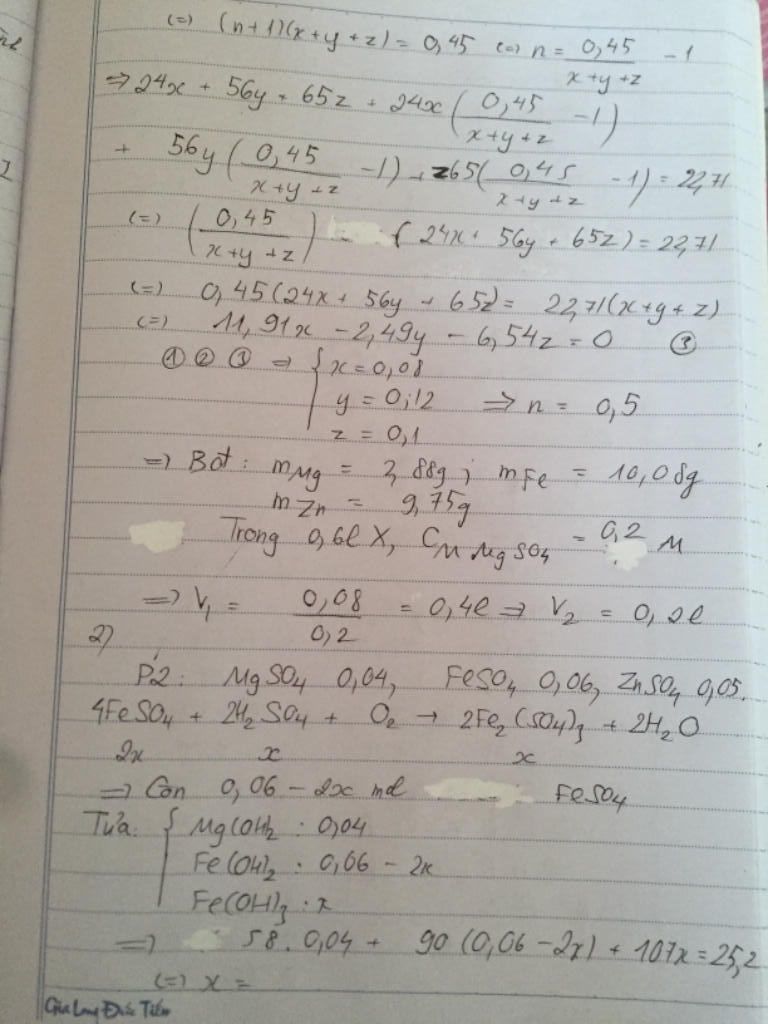 (=) (n+1)(x+y+z) = 0,45 (=) n = 0,45/(x+y+z) - 1
=> 24x + 56y + 65z + 24x (0,45/(x+y+z) - 1)
+ 56y (0,45/(x+y+z) - 1) + z65 (0,45/(x+y+z) - 1) = 22,71
(=) (0,45/(x+y+z)) (24x + 56y + 65z) = 22,71
(=) 0,45(24x + 56y + 65z) = 22,71(x+y+z)
(=) 11,91x - 2,49y - 6,54z = 0 ③
① ② ③ => { x = 0,08
y = 0,12 => n = 0,5
z = 0,1
=> Bột: mMg = 2,88g ; mFe = 10,08g
mZn = 9,75g
Trong 0,6l X, CM MgSO4 = 0,2 M
=> V1 = 0,08/0,2 = 0,4l => V2 = 0,2l
2)
P2: MgSO4 0,04, FeSO4 0,06, ZnSO4 0,05.
4FeSO4 + 2H2SO4 + O2 → 2Fe2(SO4)3 + 2H2O
2x x x
=> Còn 0,06 - 2x mol FeSO4
Tủa: { Mg(OH)2 : 0,04
Fe(OH)2 : 0,06 - 2x
Fe(OH)3 : x
=> 58. 0,04 + 90 (0,06 - 2x) + 107x = 25,2
(=) x =
Gia Long Đức Tiến